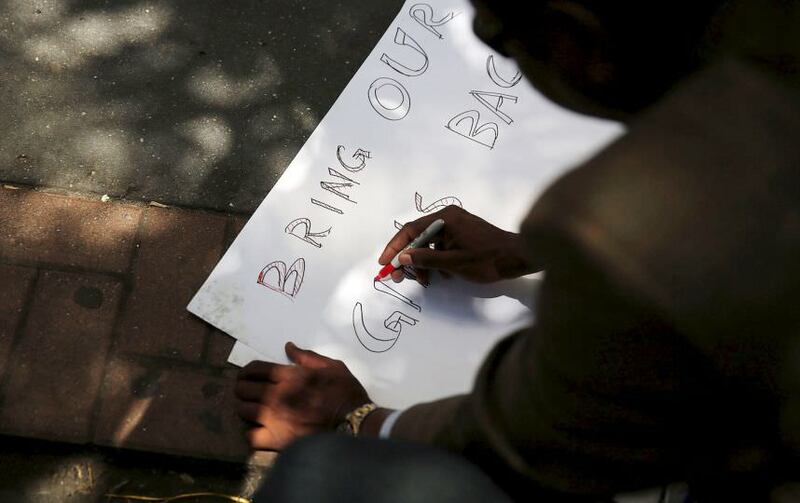 BRING OUR
GIRLS BAC